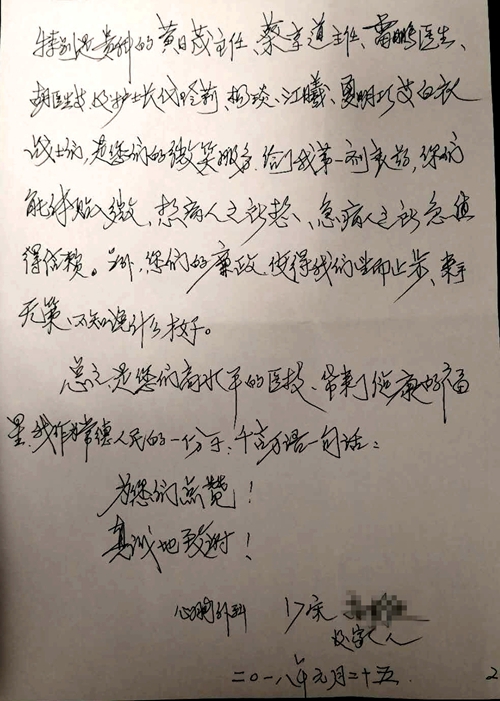 特别是贵科的黄日茂主任、蔡京道主任、雷鹏医生、
胡医生、及护士长代玲莉、杨琰、江曦、夏明巧等白衣
战士们,是您们的微笑服务,给了我第一剂良药,你们
能体贴入微、想病人之所想、急病人之所急值
得信赖。另外,您们的廉政,使得我们望而止步、束手
无策、不知说什么才好。
总之,是您们高水平的医技、带来了健康的福
星,我作为常德人民的一份子,千言万语一句话:
为您们点赞!
真诚地致谢!
心胸外科 17床
及家人
二〇一八年元月二十五
2